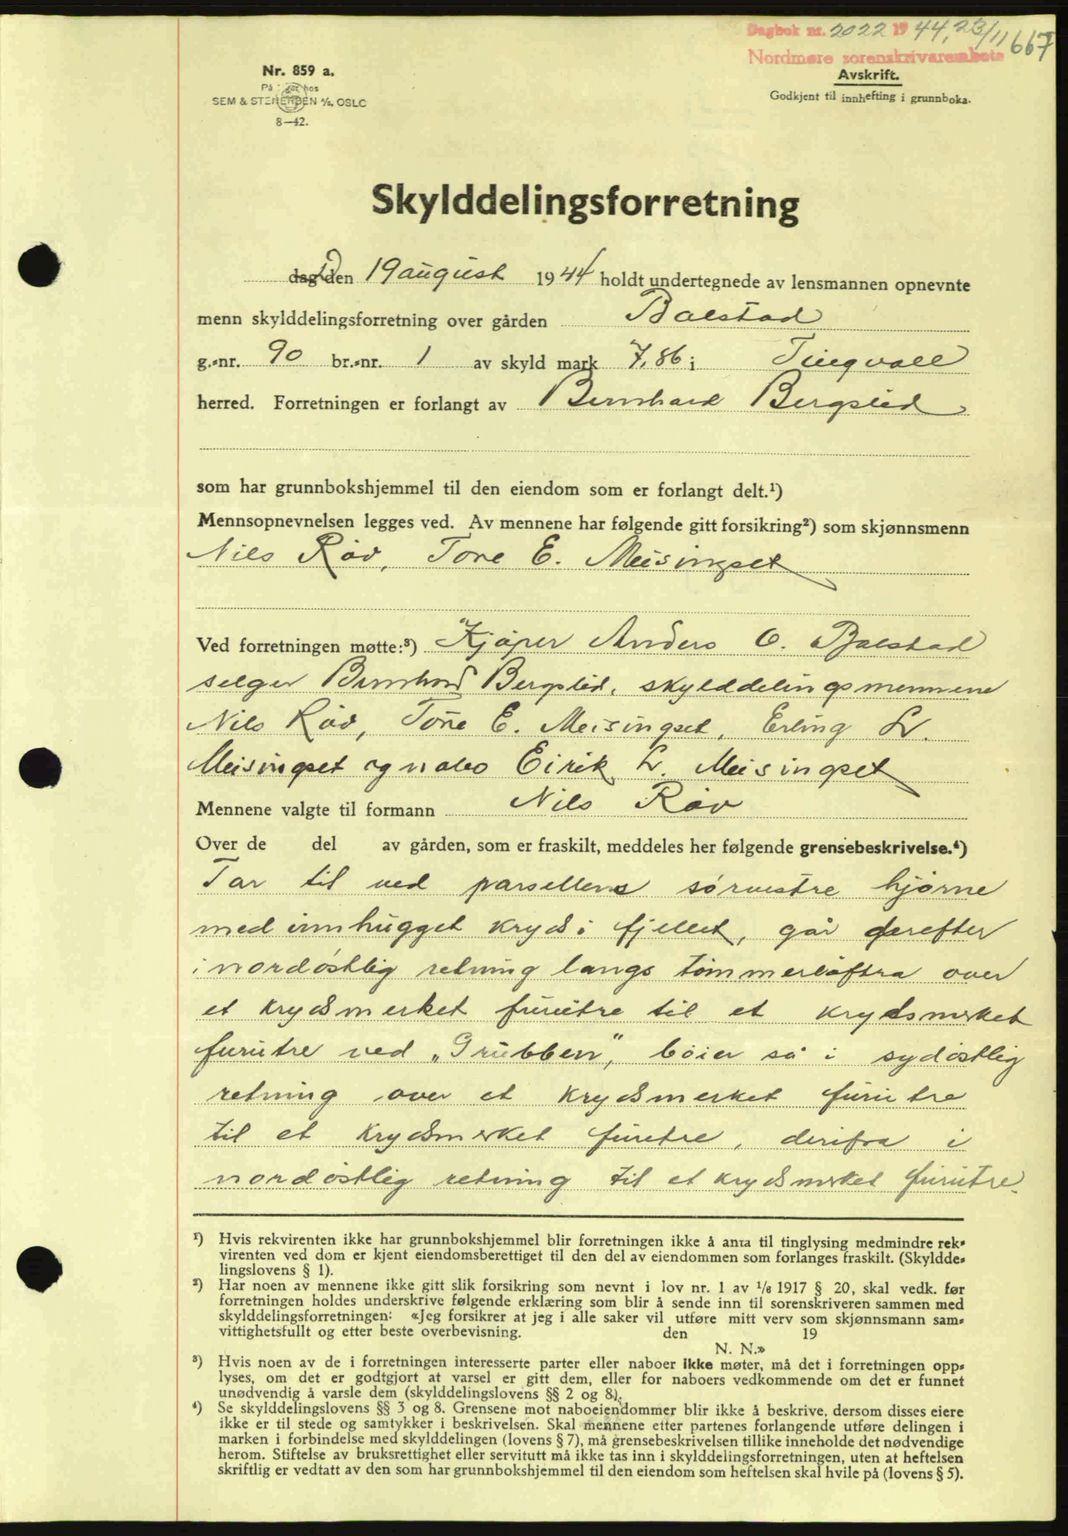 Dagbok nr. 2022 1944, 23/11 667
Nordmøre sorenskrivarembete
Avskrift.
Godkjent til innhefting i grunnboka.
Nr. 859 a.
På hos
SEM & STENERSEN A/S, OSLO
8—42.
Skylddelingsforretning
dag Den 19 august 1944 holdt undertegnede av lensmannen opnevnte
menn skylddelingsforretning over gården Balstad
g.-nr. 90 br.-nr. 1 av skyld mark 7,86 i Tingvoll
herred. Forretningen er forlangt av Bernhard Bergslid
som har grunnbokshjemmel til den eiendom som er forlangt delt.¹)
Mennsopnevnelsen legges ved. Av mennene har følgende gitt forsikring²) som skjønnsmenn
Nils Røv, Tore E. Meisingset
Ved forretningen møtte:³) Kjøper Anders O. Balstad
selger Bernhard Bergslid, skylddelingsmennene
Nils Røv, Tore E. Meisingset, Erling L.
Meisingset og nabo Eirik L. Meisingset
Mennene valgte til formann Nils Røv
Over de del av gården, som er fraskilt, meddeles her følgende grensebeskrivelse.⁴)
Tar til ved parsellens sørvestre hjørne
med innhugget kryds i fjellet, går derefter
i nordøstlig retning langs tømmerløftra over
et krydsmerket furutre til et krydsmerket
furutre ved „Grubben", bøier så i sydøstlig
retning over et krydsmerket furutre
til et krydsmerket furutre, derifra i
nordøstlig retning til et krydsmerket furutre.
¹) Hvis rekvirenten ikke har grunnbokshjemmel blir forretningen ikke å anta til tinglysing medmindre rek-
virenten ved dom er kjent eiendomsberettiget til den del av eiendommen som forlanges fraskilt. (Skyldde-
lingslovens § 1).
²) Har noen av mennene ikke gitt slik forsikring som nevnt i lov nr. 1 av 1/6 1917 § 20, skal vedk. før
forretningen holdes underskrive følgende erklæring som blir å sende inn til sorenskriveren sammen med
skylddelingsforretningen: «Jeg forsikrer at jeg i alle saker vil utføre mitt verv som skjønnsmann sam-
vittighetsfullt og etter beste overbevisning. den 19
N. N.»
³) Hvis noen av de i forretningen interesserte parter eller naboer ikke møter, må det i forretningen opp-
lyses, om det er godtgjort at varsel er gitt dem, eller for naboers vedkommende om det er funnet
unødvendig å varsle dem (skylddelingslovens §§ 2 og 8).
⁴) Se skylddelingslovens §§ 3 og 8. Grensene mot naboeiendommer blir ikke å beskrive, dersom disses eiere
ikke er til stede og samtykker i beskrivelsen. Skal mennene etter partenes forlangende utføre delingen i
marken i forbindelse med skylddelingen (lovens § 7), må grensebeskrivelsen tillike inneholde det nødvendige
herom. Stiftelse av bruksrettighet eller servitutt må ikke tas inn i skylddelingsforretningen, uten at heftelsen
skriftlig er vedtatt av den som har grunnbokshjemmel til den eiendom som heftelsen skal hvile på (lovens § 5).